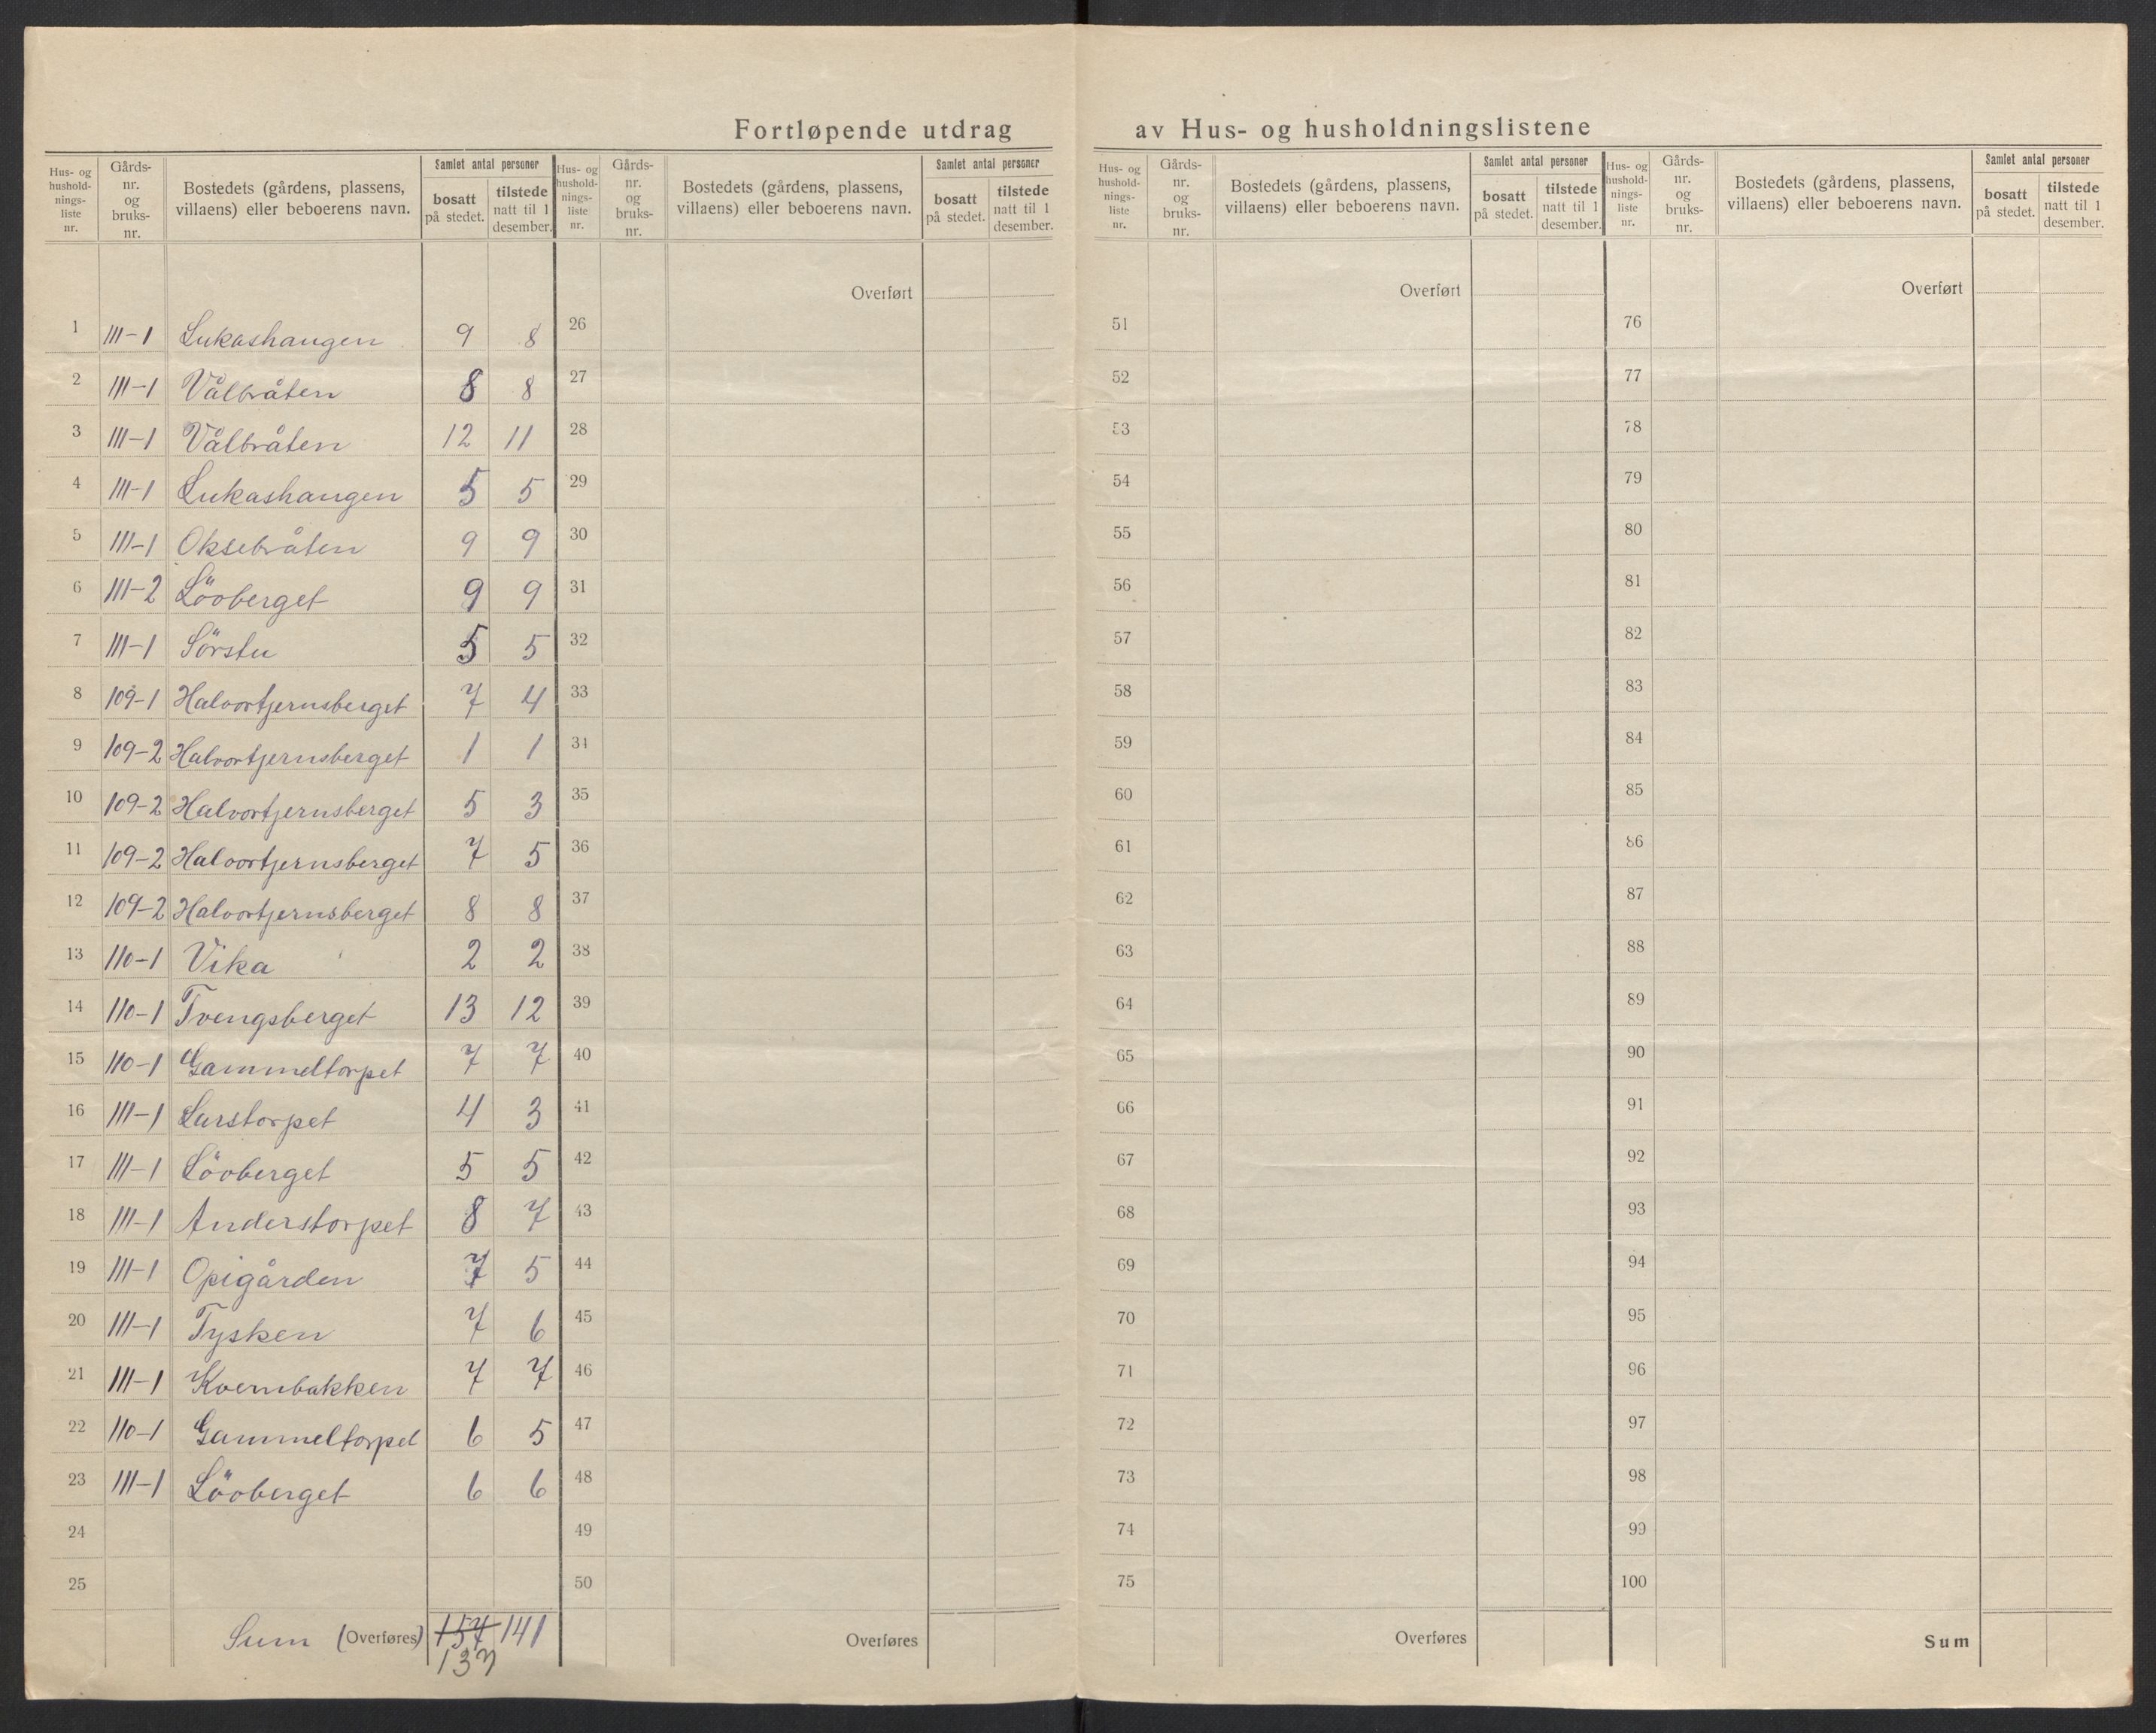 Fortløpende utdrag av Hus- og husholdningslistene
Hus- og hushold- nings- liste nr. Gårds- nr. og bruks- nr. Bostedets (gårdens, plassens, villaens) eller beboerens navn. Samlet antal personer bosatt på stedet. tilstede natt til 1 desember.
Hus- og hushold- nings- liste nr. Gårds- nr. og bruks- nr. Bostedets (gårdens, plassens, villaens) eller beboerens navn. Samlet antal personer bosatt på stedet. tilstede natt til 1 desember.
Hus- og hushold- nings- liste nr. Gårds- nr. og bruks- nr. Bostedets (gårdens, plassens, villaens) eller beboerens navn. Samlet antal personer bosatt på stedet. tilstede natt til 1 desember.
Hus- og hushold- nings- liste nr. Gårds- nr. og bruks- nr. Bostedets (gårdens, plassens, villaens) eller beboerens navn. Samlet antal personer bosatt på stedet. tilstede natt til 1 desember.
Overført Overført Overført
1 111-1 Lukashaugen 9 8 26 51 76
2 111-1 Vålbråten 8 8 27 52 77
3 111-1 Vålbråten 12 11 28 53 78
4 111-1 Lukashaugen 5 5 29 54 79
5 111-1 Oksebråten 9 9 30 55 80
6 111-2 Lövberget 9 9 31 56 81
7 111-1 Sörstu 5 5 32 57 82
8 109-1 Halvortjernsberget 7 4 33 58 83
9 109-2 Halvortjernsberget 1 1 34 59 84
10 109-2 Halvortjernsberget 5 3 35 60 85
11 109-2 Halvortjernsberget 7 5 36 61 86
12 109-2 Halvortjernsberget 8 8 37 62 87
13 110-1 Vika 2 2 38 63 88
14 110-1 Tvengsberget 13 12 39 64 89
15 110-1 Gammeltorpet 7 7 40 65 90
16 111-1 Larstorpet 4 3 41 66 91
17 111-1 Lövberget 5 5 42 67 92
18 111-1 Anderstorpet 8 7 43 68 93
19 111-1 Opigården 7 5 44 69 94
20 111-1 Tysken 7 6 45 70 95
21 111-1 Kvernbakken 7 7 46 71 96
22 110-1 Gammeltorpet 6 5 47 72 97
23 111-1 Lövberget 6 6 48 73 98
24 49 74 99
25 50 75 100
Sum (Overføres) 157 141 Overføres Overføres Sum
137